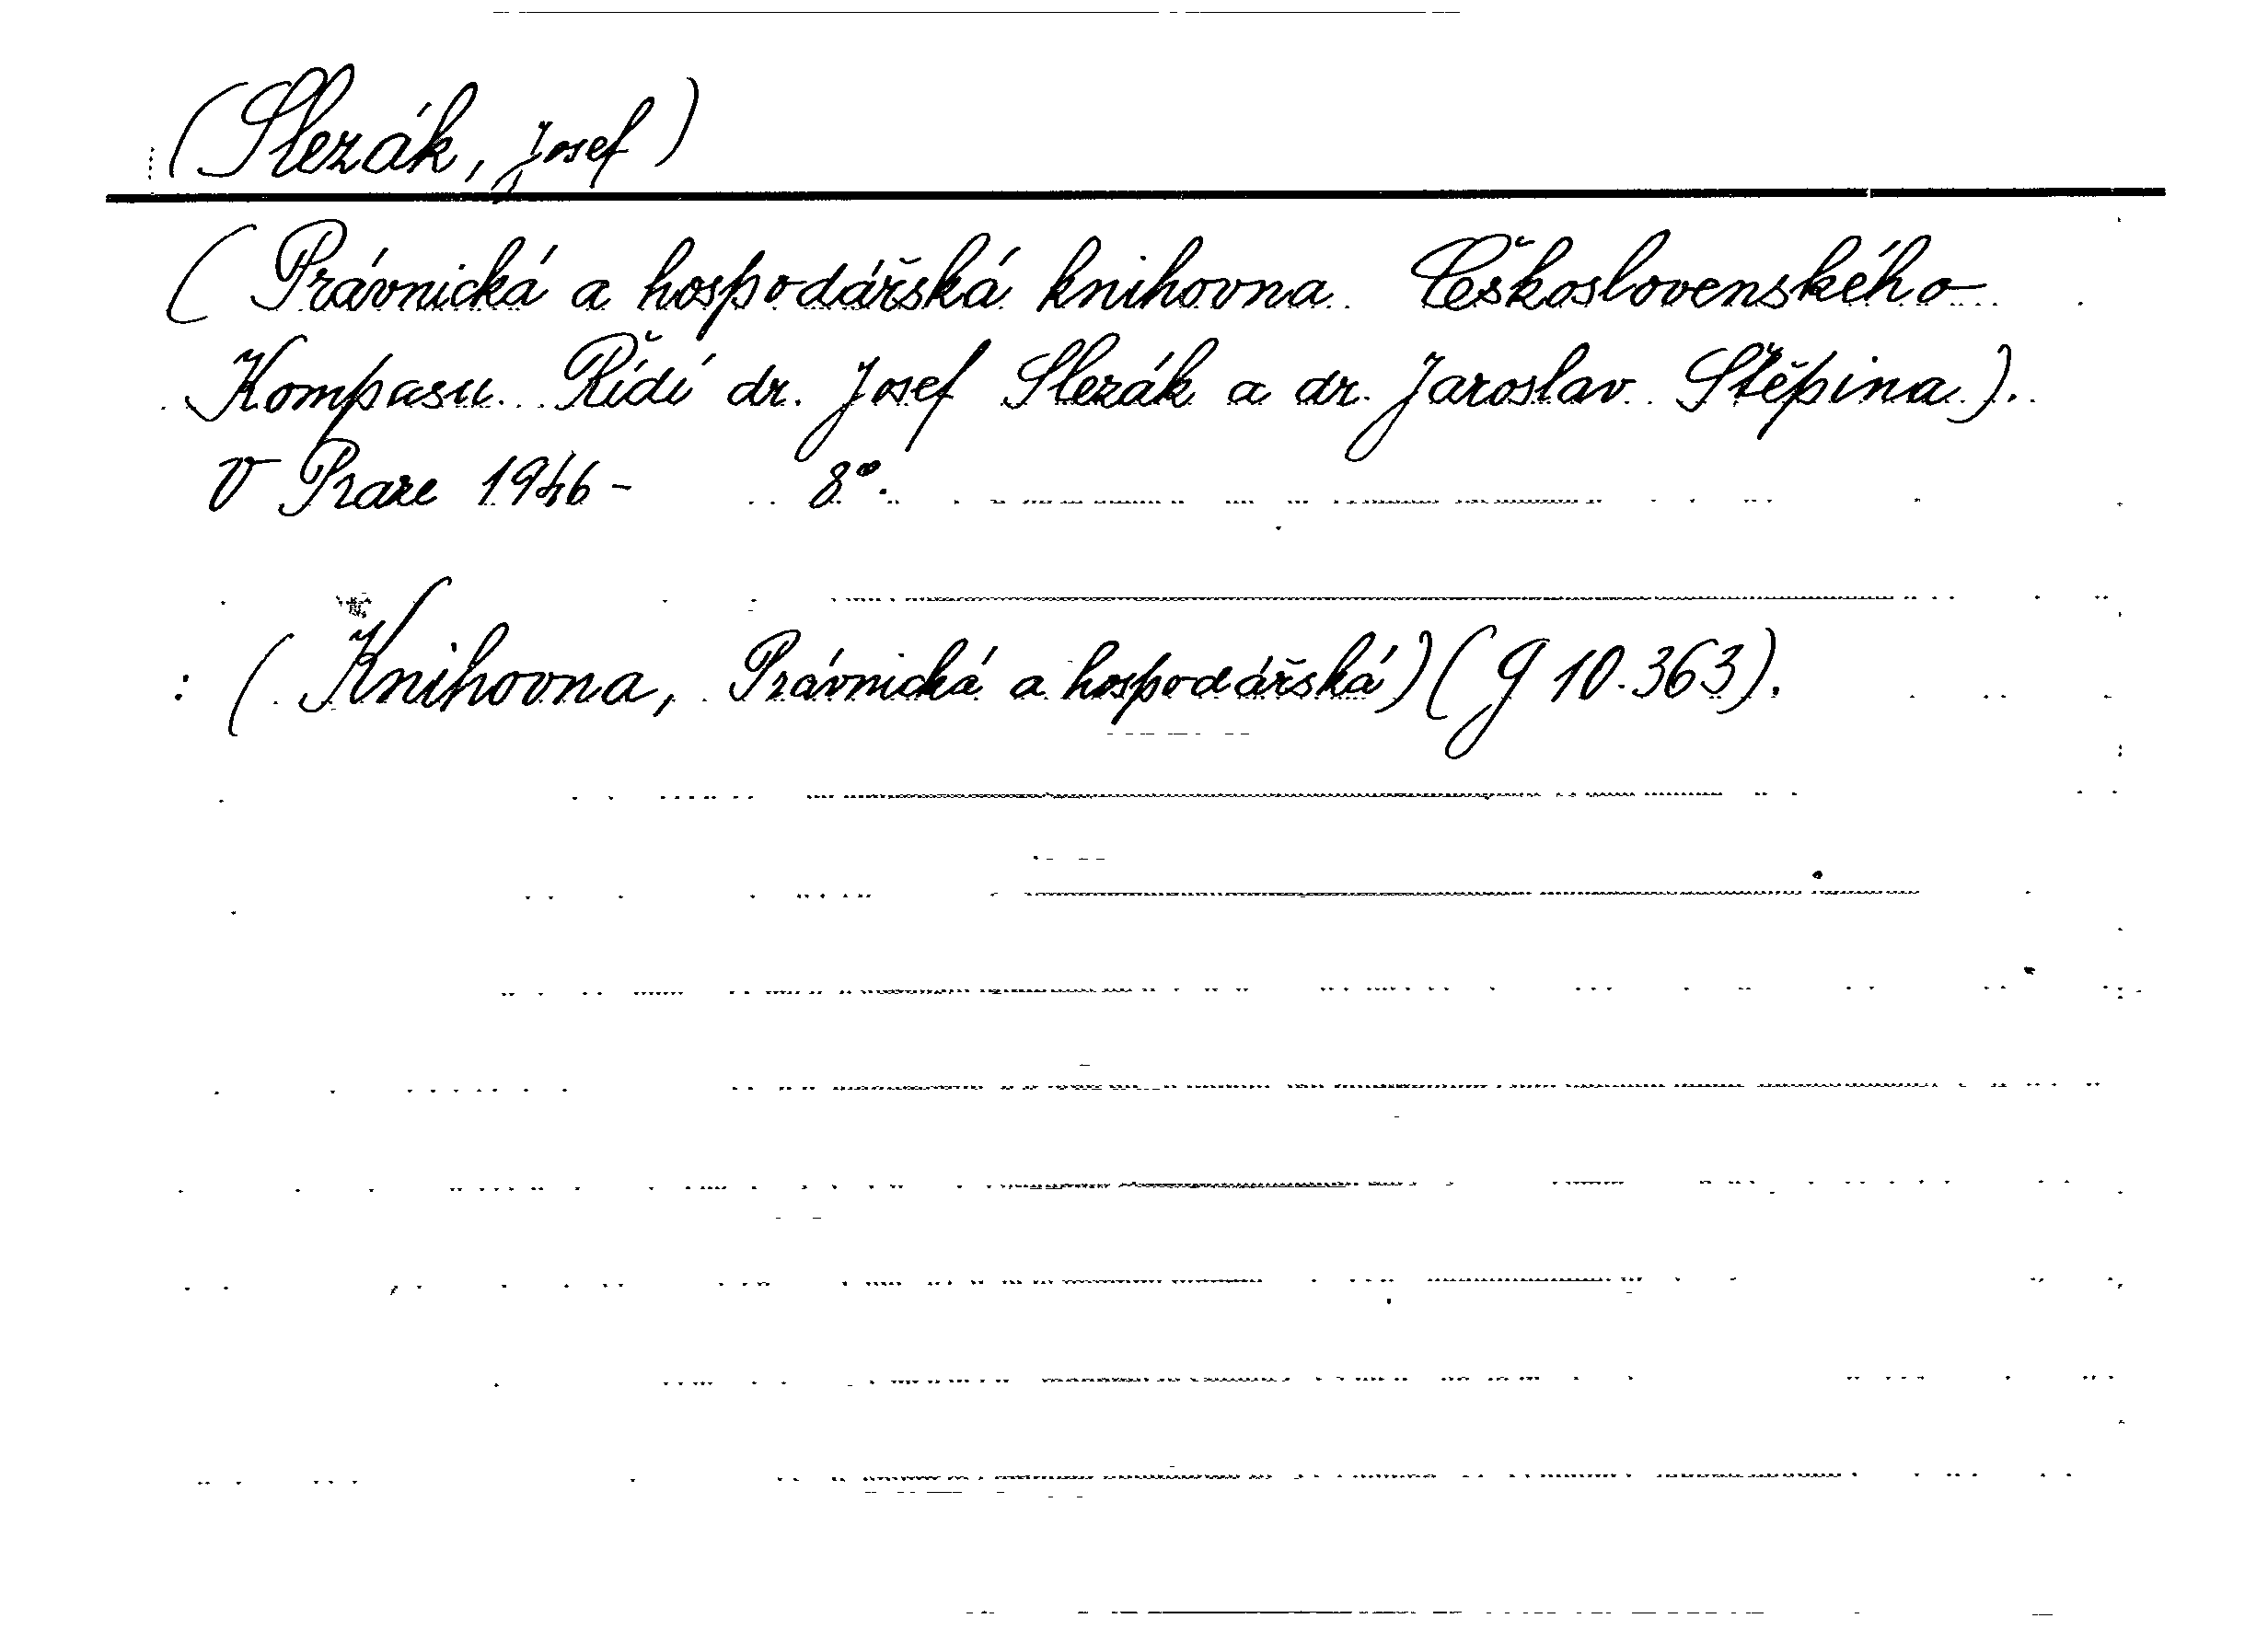 (Slezák, Josef)
(Právnická a hospodářská knihovna Československého
Kompasu. Řídí dr. Josef Slezák a dr. Jaroslav Štěpina).
V Praze 1946- 8°.
: (Knihovna, Právnická a hospodářská) (g 10.363).